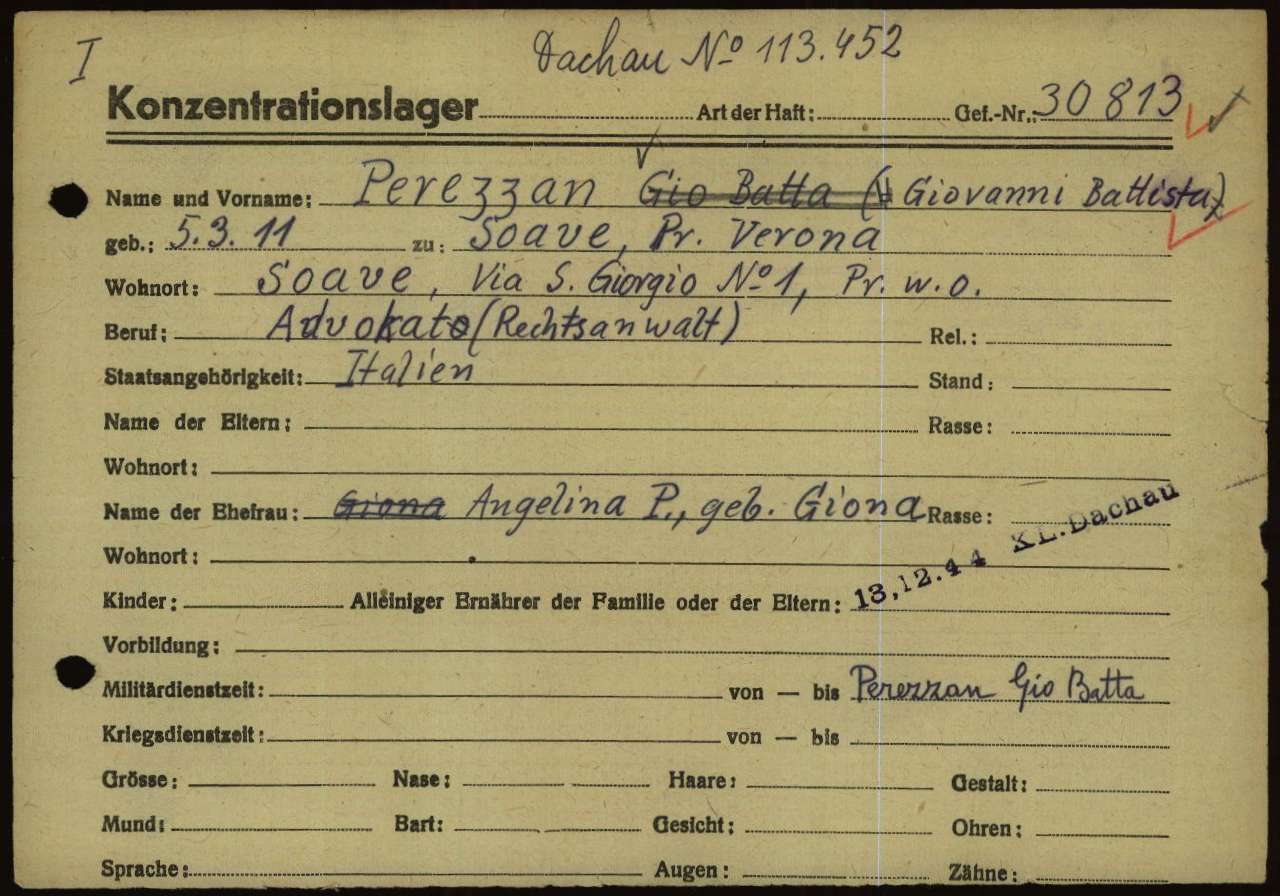 I
Dachau Nº 113.452
Konzentrationslager Art der Haft: Gef.-Nr.: 30813
Name und Vorname: Perezzan Gio Batta ( Giovanni Battista)
geb.: 5.3.11 zu: Soave, Pr. Verona
Wohnort: Soave, Via S. Giorgio Nº 1, Pr. w.o.
Beruf: Advokato (Rechtsanwalt) Rel.:
Staatsangehörigkeit: Italien Stand:
Name der Eltern: Rasse:
Wohnort:
Name der Ehefrau: Giona Angelina P., geb. Giona Rasse:
Wohnort:
13.12.44 KL. Dachau
Kinder: Alleiniger Ernährer der Familie oder der Eltern:
Vorbildung:
Militärdienstzeit: von — bis Perezzan Gio Batta
Kriegsdienstzeit: von — bis
Grösse: Nase: Haare: Gestalt:
Mund: Bart: Gesicht: Ohren:
Sprache: Augen: Zähne: